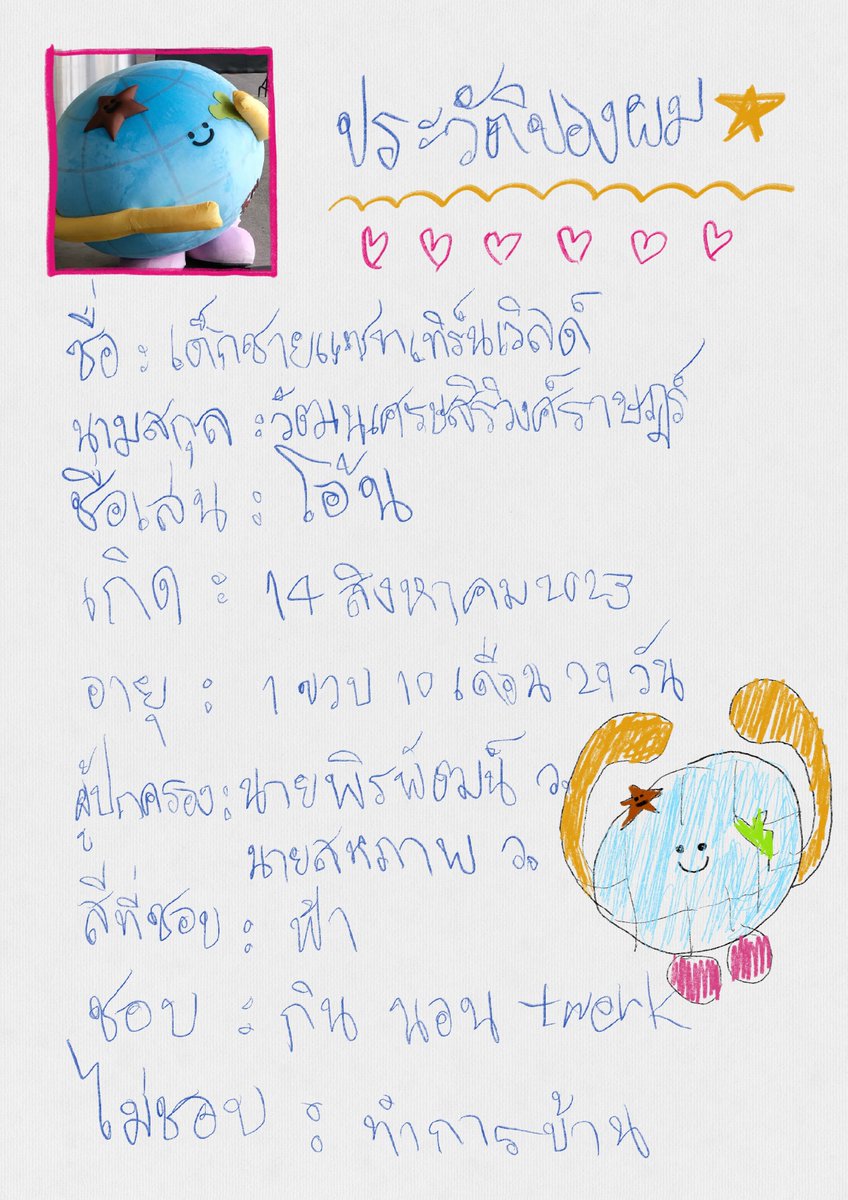 ประวัติของผม
ชื่อ : เด็กชายแซทเทิร์นเวิลด์
นามสกุล : วัฒนเศรษสิริวงศ์ราษฎร์
ชื่อเล่น : โอ้น
เกิด : 14 สิงหาคม 2023
อายุ : 1 ขวบ 10 เดือน 29 วัน
ผู้ปกครอง : นายพิรพัฒน์ ว.
นายสหภาพ ว.
สีที่ชอบ : ฟ้า
ชอบ : กิน นอน twerk
ไม่ชอบ : ทำการบ้าน